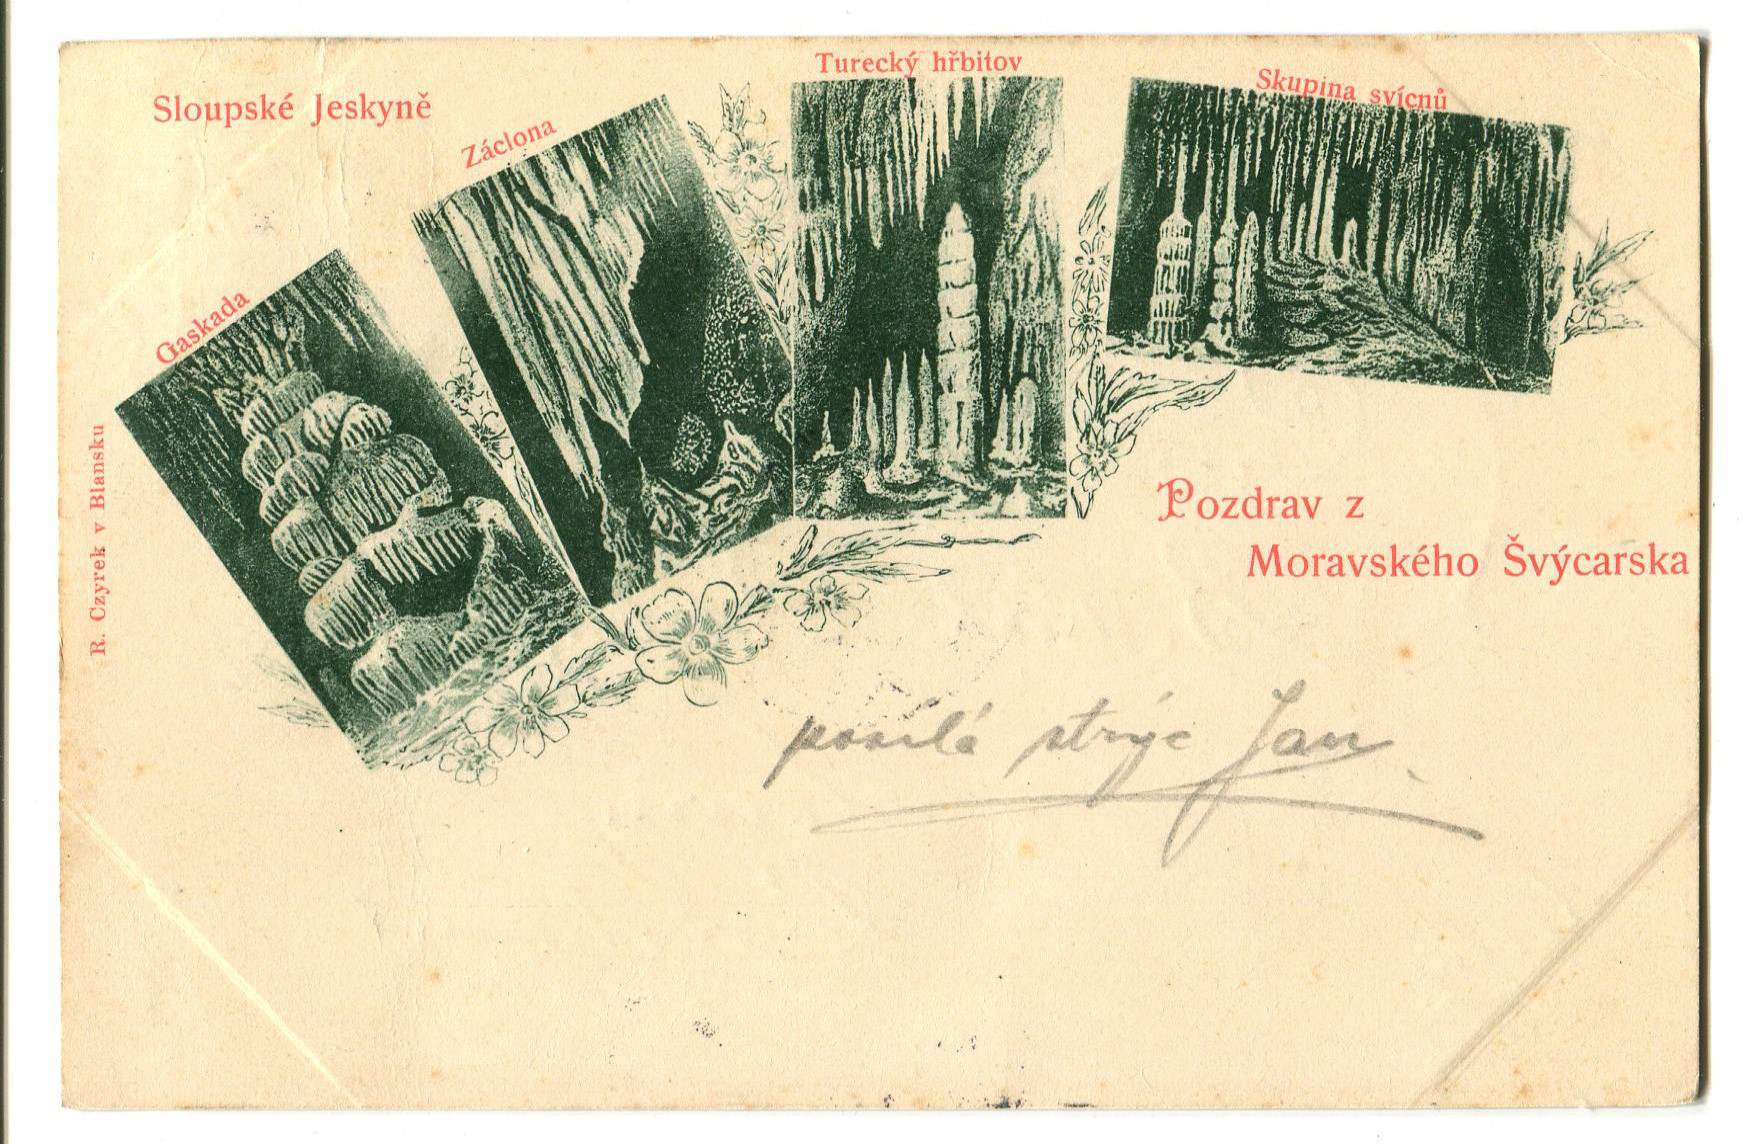 Sloupské Jeskyně
Gaskada
Záclona
Turecký hřbitov
Skupina svícnů
Pozdrav z
Moravského Švýcarska
posílá strýc Jan
R. Czyrek v Blansku